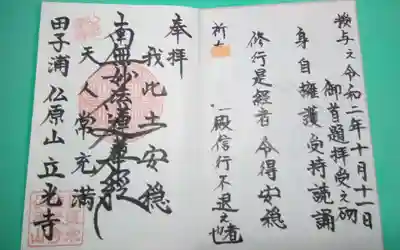 授与之令和二年十月十一日
御首題拝受之砌
身自擁護受持読誦
修行是経者令得安穏
祈
一殿信行不退之者也
奉拝
我此土安穏
南無妙法蓮華経
天人常充満
田子浦仏原山立光寺